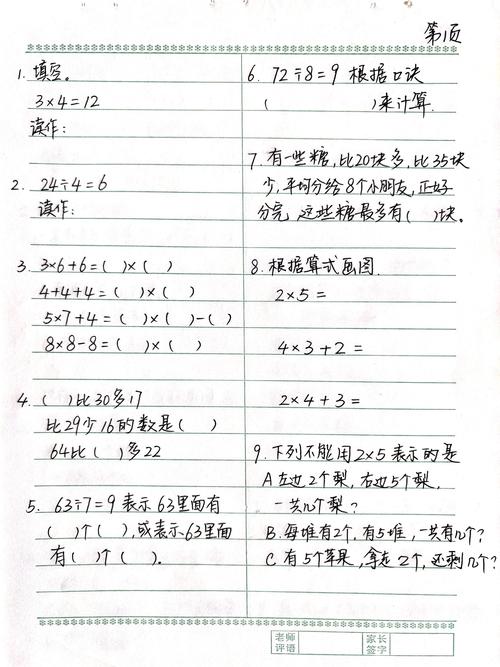 第1页
1. 填空。
3×4=12
读作:
2. 24÷4=6
读作:
3. 3×6+6=( )×( )
4+4+4=( )×( )
5×7+4=( )×( )-( )
8×8-8=( )×( )
4. ( )比30多17
比29少16的数是( )
64比( )多22
5. 63÷7=9表示63里面有
( )个( ),或表示63里面
有( )个( )。
6. 72÷8=9 根据口诀
( )来计算.
7. 有一些糖,比20块多,比35块
少,平均分给8个小朋友,正好
分完,这些糖最多有( )块。
8. 根据算式画图.
2×5=
4×3+2=
2×4+3=
9. 下列不能用2×5表示的是
A 左边2个梨,右边5个梨,
一共几个梨?
B. 每堆有2个,有5堆,一共有几个?
C 有5个苹果,拿走2个,还剩几个?
老师评语
家长签字